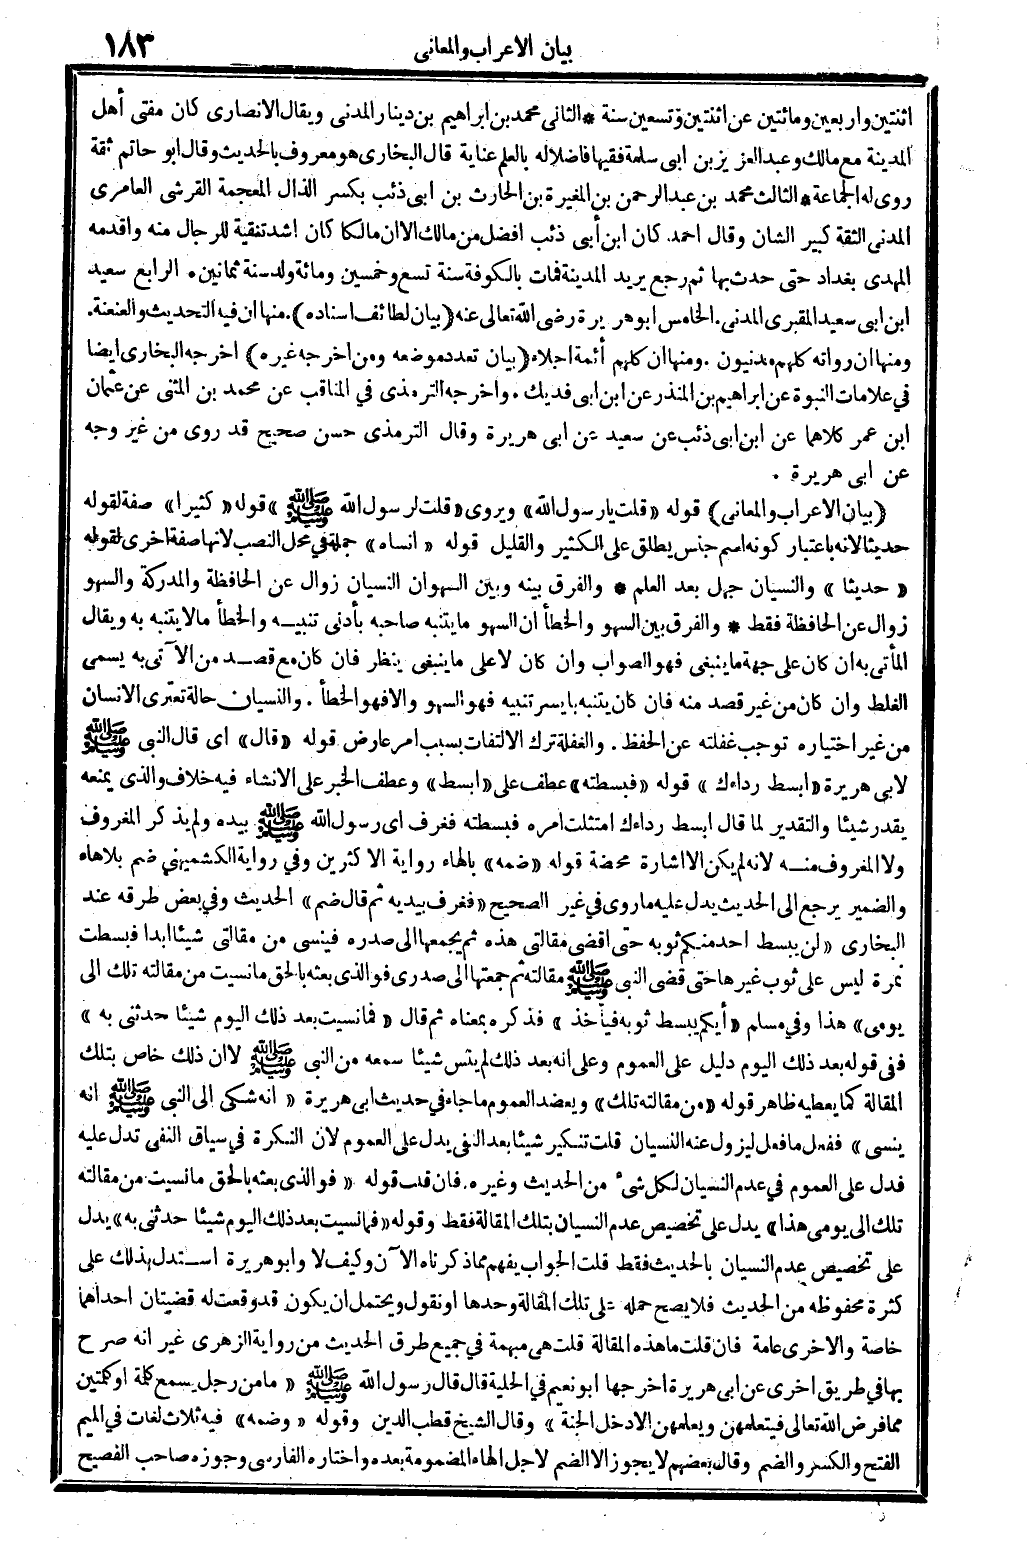 بيان الاعراب والمعانى ١٨٣
اثنتين واربعين ومائتين عن اثنتين وتسعين سنة * الثانى محمد بن ابراهيم بن دينار المدنى ويقال الانصارى كان مفتى أهل
المدينة مع مالك وعبد العزيز بن ابى سلمة فقيها فاضلا له بالعلم عناية قال البخارى هو معروف بالحديث وقال ابو حاتم ثقة
روى له الجماعة * الثالث محمد بن عبد الرحمن بن المغيرة بن الحارث بن ابى ذئب بكسر الذال المعجمة القرشى العامرى
المدنى الثقة كبير الشان وقال احمد كان ابن أبى ذئب افضل من مالك الا ان مالكا كان اشد تنقية للرجال منه واقدمه
المهدى بغداد حتى حدث بها ثم رجع يريد المدينة فمات بالكوفة سنة تسع وخمسين ومائة ولد سنة ثمانين . الرابع سعيد
ابن ابى سعيد المقبرى المدنى . الخامس ابو هريرة رضى الله تعالى عنه (بيان لطائف اسناده) . منها ان فيه التحديث والعنعنة .
ومنها ان رواته كلهم مدنيون . ومنها ان كلهم أئمة اجلاء (بيان تعدد موضعه ومن اخرجه غيره) اخرجه البخارى ايضا
في علامات النبوة عن ابراهيم بن المنذر عن ابن ابى فديك . واخرجه الترمذى في المناقب عن محمد بن المثنى عن عثمان
ابن عمر كلاهما عن ابن ابى ذئب عن سعيد عن ابى هريرة وقال الترمذى حسن صحيح قد روى من غير وجه
عن ابى هريرة .
(بيان الاعراب والمعانى) قوله « قلت يارسول الله » ويروى « قلت لرسول الله ﷺ » قوله « كثيرا » صفة لقوله
حديثا لانه باعتبار كونه اسم جنس يطلق على الكثير والقليل قوله « انساه » جملة في محل النصب لانها صفة اخرى لقوله
« حديثا » والنسيان جهل بعد العلم * والفرق بينه وبين السهو ان النسيان زوال عن الحافظة والمدركة والسهو
زوال عن الحافظة فقط * والفرق بين السهو والخطأ ان السهو ما يتنبه صاحبه بأدنى تنبيه والخطأ مالا يتنبه به ويقال
المأتى به ان كان على جهة ما ينبغى فهو الصواب وان كان لا على ما ينبغى ينظر فان كان مع قصد من الآتى به يسمى
الغلط وان كان من غير قصد منه فان كان يتنبه بايسر تنبيه فهو السهو والا فهو الخطأ . والنسيان حالة تعترى الانسان
من غير اختياره توجب غفلته عن الحفظ . والغفلة ترك الالتفات بسبب امر عارض قوله « قال » اى قال النبى ﷺ
لابى هريرة « ابسط رداءك » قوله « فبسطته » عطف على « ابسط » وعطف الخبر على الانشاء فيه خلاف والذى يمنعه
يقدر شيئا والتقدير لما قال ابسط رداءك امتثلت امره فبسطته فغرف اى رسول الله ﷺ بيده ولم يذكر المغروف
ولا المغروف منه لانه لم يكن الا اشارة محضة قوله « ضمه » بالهاء رواية الاكثرين وفي رواية الكشميهني ضم بلا هاء
والضمير يرجع الى الحديث يدل عليه ما روى في غير الصحيح « فغرف بيديه ثم قال ضم » الحديث وفي بعض طرقه عند
البخارى « لن يبسط احد منكم ثوبه حتى اقضى مقالتى هذه ثم يجمعها الى صدره فينسى من مقالتى شيئا ابدا فبسطت
نمرة ليس على ثوب غيرها حتى قضى النبى ﷺ مقالته ثم جمعتها الى صدرى فوالذى بعثه بالحق ما نسيت من مقالته تلك الى
يومى » هذا وفي مسلم « أيكم يبسط ثوبه فيأخذ » فذكره بمعناه ثم قال « فما نسيت بعد ذلك اليوم شيئا حدثنى به »
ففى قوله بعد ذلك اليوم دليل على العموم وعلى انه بعد ذلك لم ينس شيئا سمعه من النبى ﷺ لا ان ذلك خاص بتلك
المقالة كما يعطيه ظاهر قوله « من مقالته تلك » ويعضد العموم ما جاء في حديث ابى هريرة « انه شكى الى النبى ﷺ انه
ينسى » ففعل ما فعل ليزول عنه النسيان قلت تنكير شيئا بعد النفى يدل على العموم لان النكرة في سياق النفى تدل عليه
فدل على العموم في عدم النسيان لكل شىء من الحديث وغيره . فان قلت قوله « فوالذى بعثه بالحق ما نسيت من مقالته
تلك الى يومى هذا » يدل على تخصيص عدم النسيان بتلك المقالة فقط وقوله « فما نسيت بعد ذلك اليوم شيئا حدثنى به » يدل
على تخصيص عدم النسيان بالحديث فقط قلت الجواب يفهم مما ذكرناه الآن وكيف لا وابو هريرة استدل بذلك على
كثرة محفوظه من الحديث فلا يصح حمله على تلك المقالة وحدها او نقول ويحتمل ان يكون قد وقعت له قضيتان احداهما
خاصة والاخرى عامة فان قلت ما هذه المقالة قلت هى مبهمة في جميع طرق الحديث من رواية الزهرى غير انه صرح
بها في طريق اخرى عن ابى هريرة اخرجها ابو نعيم في الحلية قال قال رسول الله ﷺ « ما من رجل يسمع كلمة او كلمتين
مما فرض الله تعالى فيتعلمهن ويعلمهن الا دخل الجنة » وقال الشيخ قطب الدين وقوله « وضمه » فيه ثلاث لغات في الميم
الفتح والكسر والضم وقال بعضهم لا يجوز الا الضم لاجل الهاء المضمومة بعده واختاره الفارسى وجوزه صاحب الفصيح